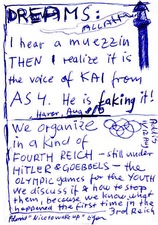 DREAMS:
ALLAH
I hear a muezzin
THEN I realize it is
the voice of KAI from
AS4. He is faking it!
Harer, Aug
We organize
in a kind of
FOURTH REICH - still under
HITLER & GOEBBELS - the
OLYMPIC games for the YOUTH
We discuss if & how to stop
them, because we know what
happened the first time in the
3rd Reich
"Nice to wake up"